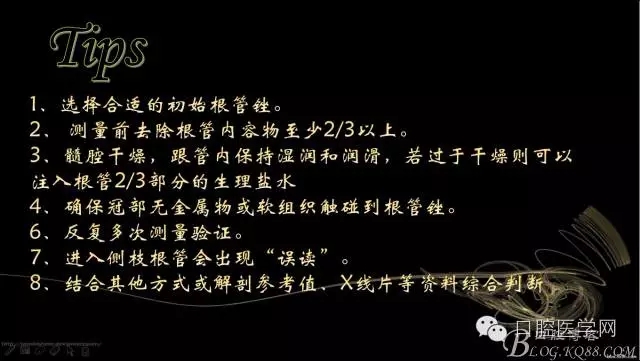 Tips
1、选择合适的初始根管锉。
2、 测量前去除根管内容物至少2/3以上。
3、髓腔干燥，跟管内保持湿润和润滑，若过于干燥则可以
注入根管2/3部分的生理盐水
4、确保冠部无金属物或软组织触碰到根管锉。
6、反复多次测量验证。
7、进入侧枝根管会出现“误读”。
8、结合其他方式或解剖参考值、X线片等资料综合判断
口腔医学网
BLOG.KQ88.COM